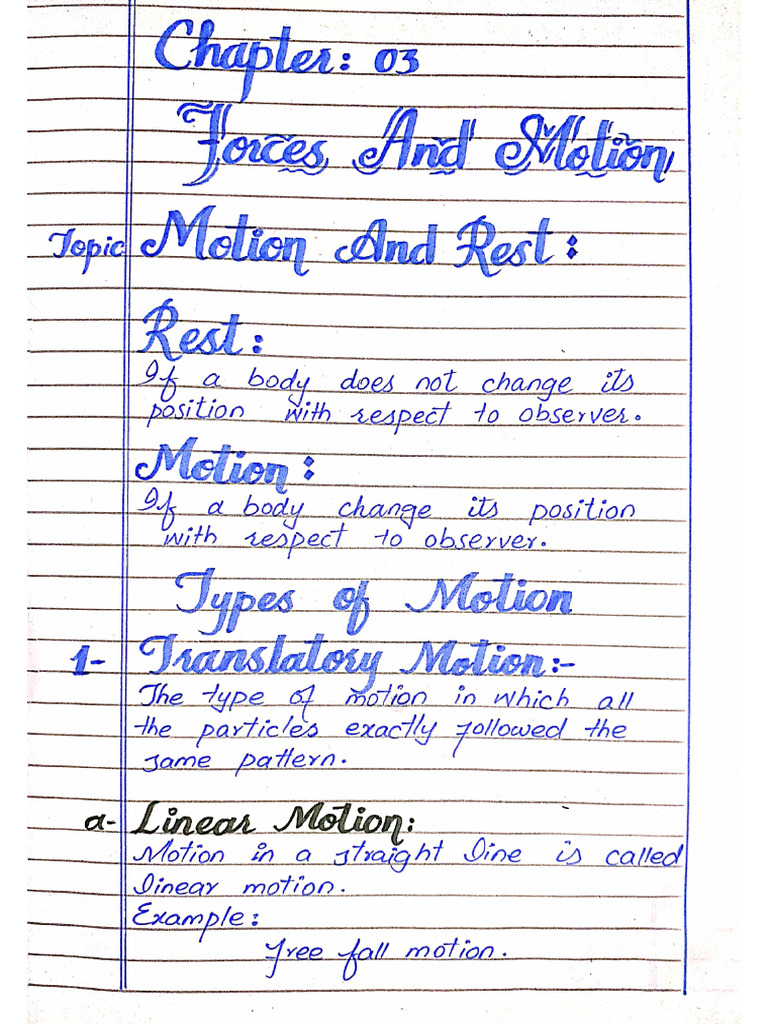 Chapter: 03
Forces And Motion
Topic Motion And Rest:
Rest:
If a body does not change its
position with respect to observer.
Motion:
If a body change its position
with respect to observer.
Types of Motion
1- Translatory Motion:-
The type of motion in which all
the particles exactly followed the
same pattern.
a- Linear Motion:
Motion in a straight line is called
linear motion.
Example:
Free fall motion.